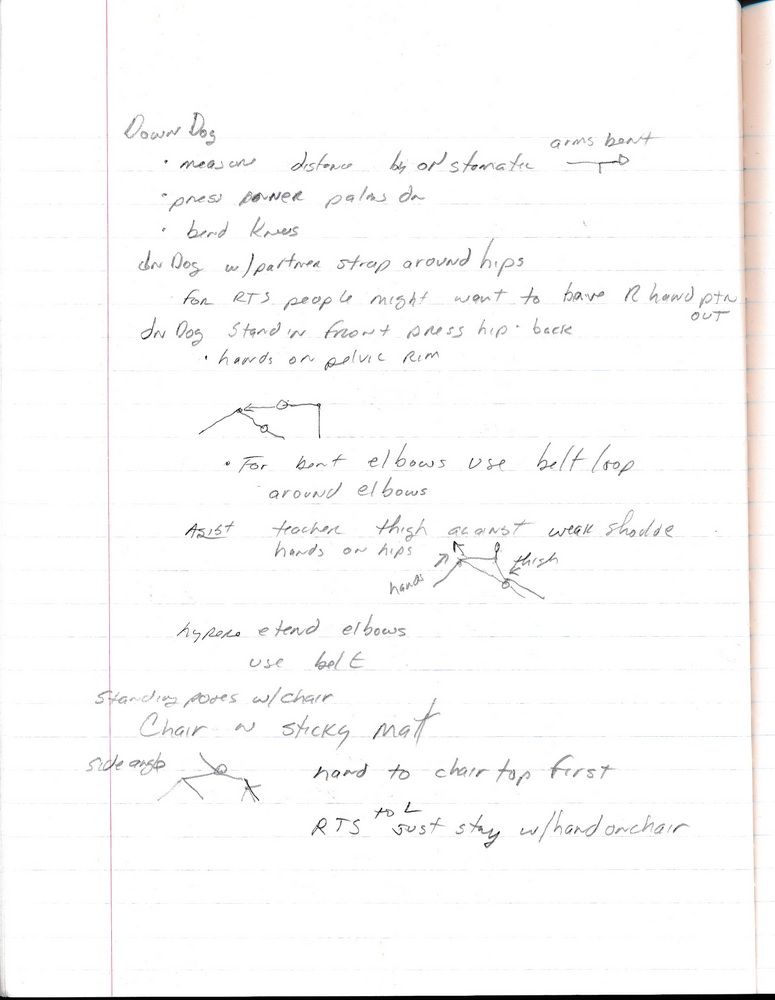 Down Dog
arms bent
• measure distance by on stomatic
• press inner palms dn
• bend knees
dn Dog w/partner strap around hips
for RTS people might want to have R hand ptn
OUT
dn Dog stand in front press hip back
• hands on pelvic rim
• For bent elbows use belt loop
around elbows
Asist teacher thigh against weak sholde
hands on hips
thigh
hands
hypere etend elbows
use belt
Standing poses w/chair
Chair n sticky matt
side angle
hand to chair top first
to L
RTS Just stay w/hand on chair